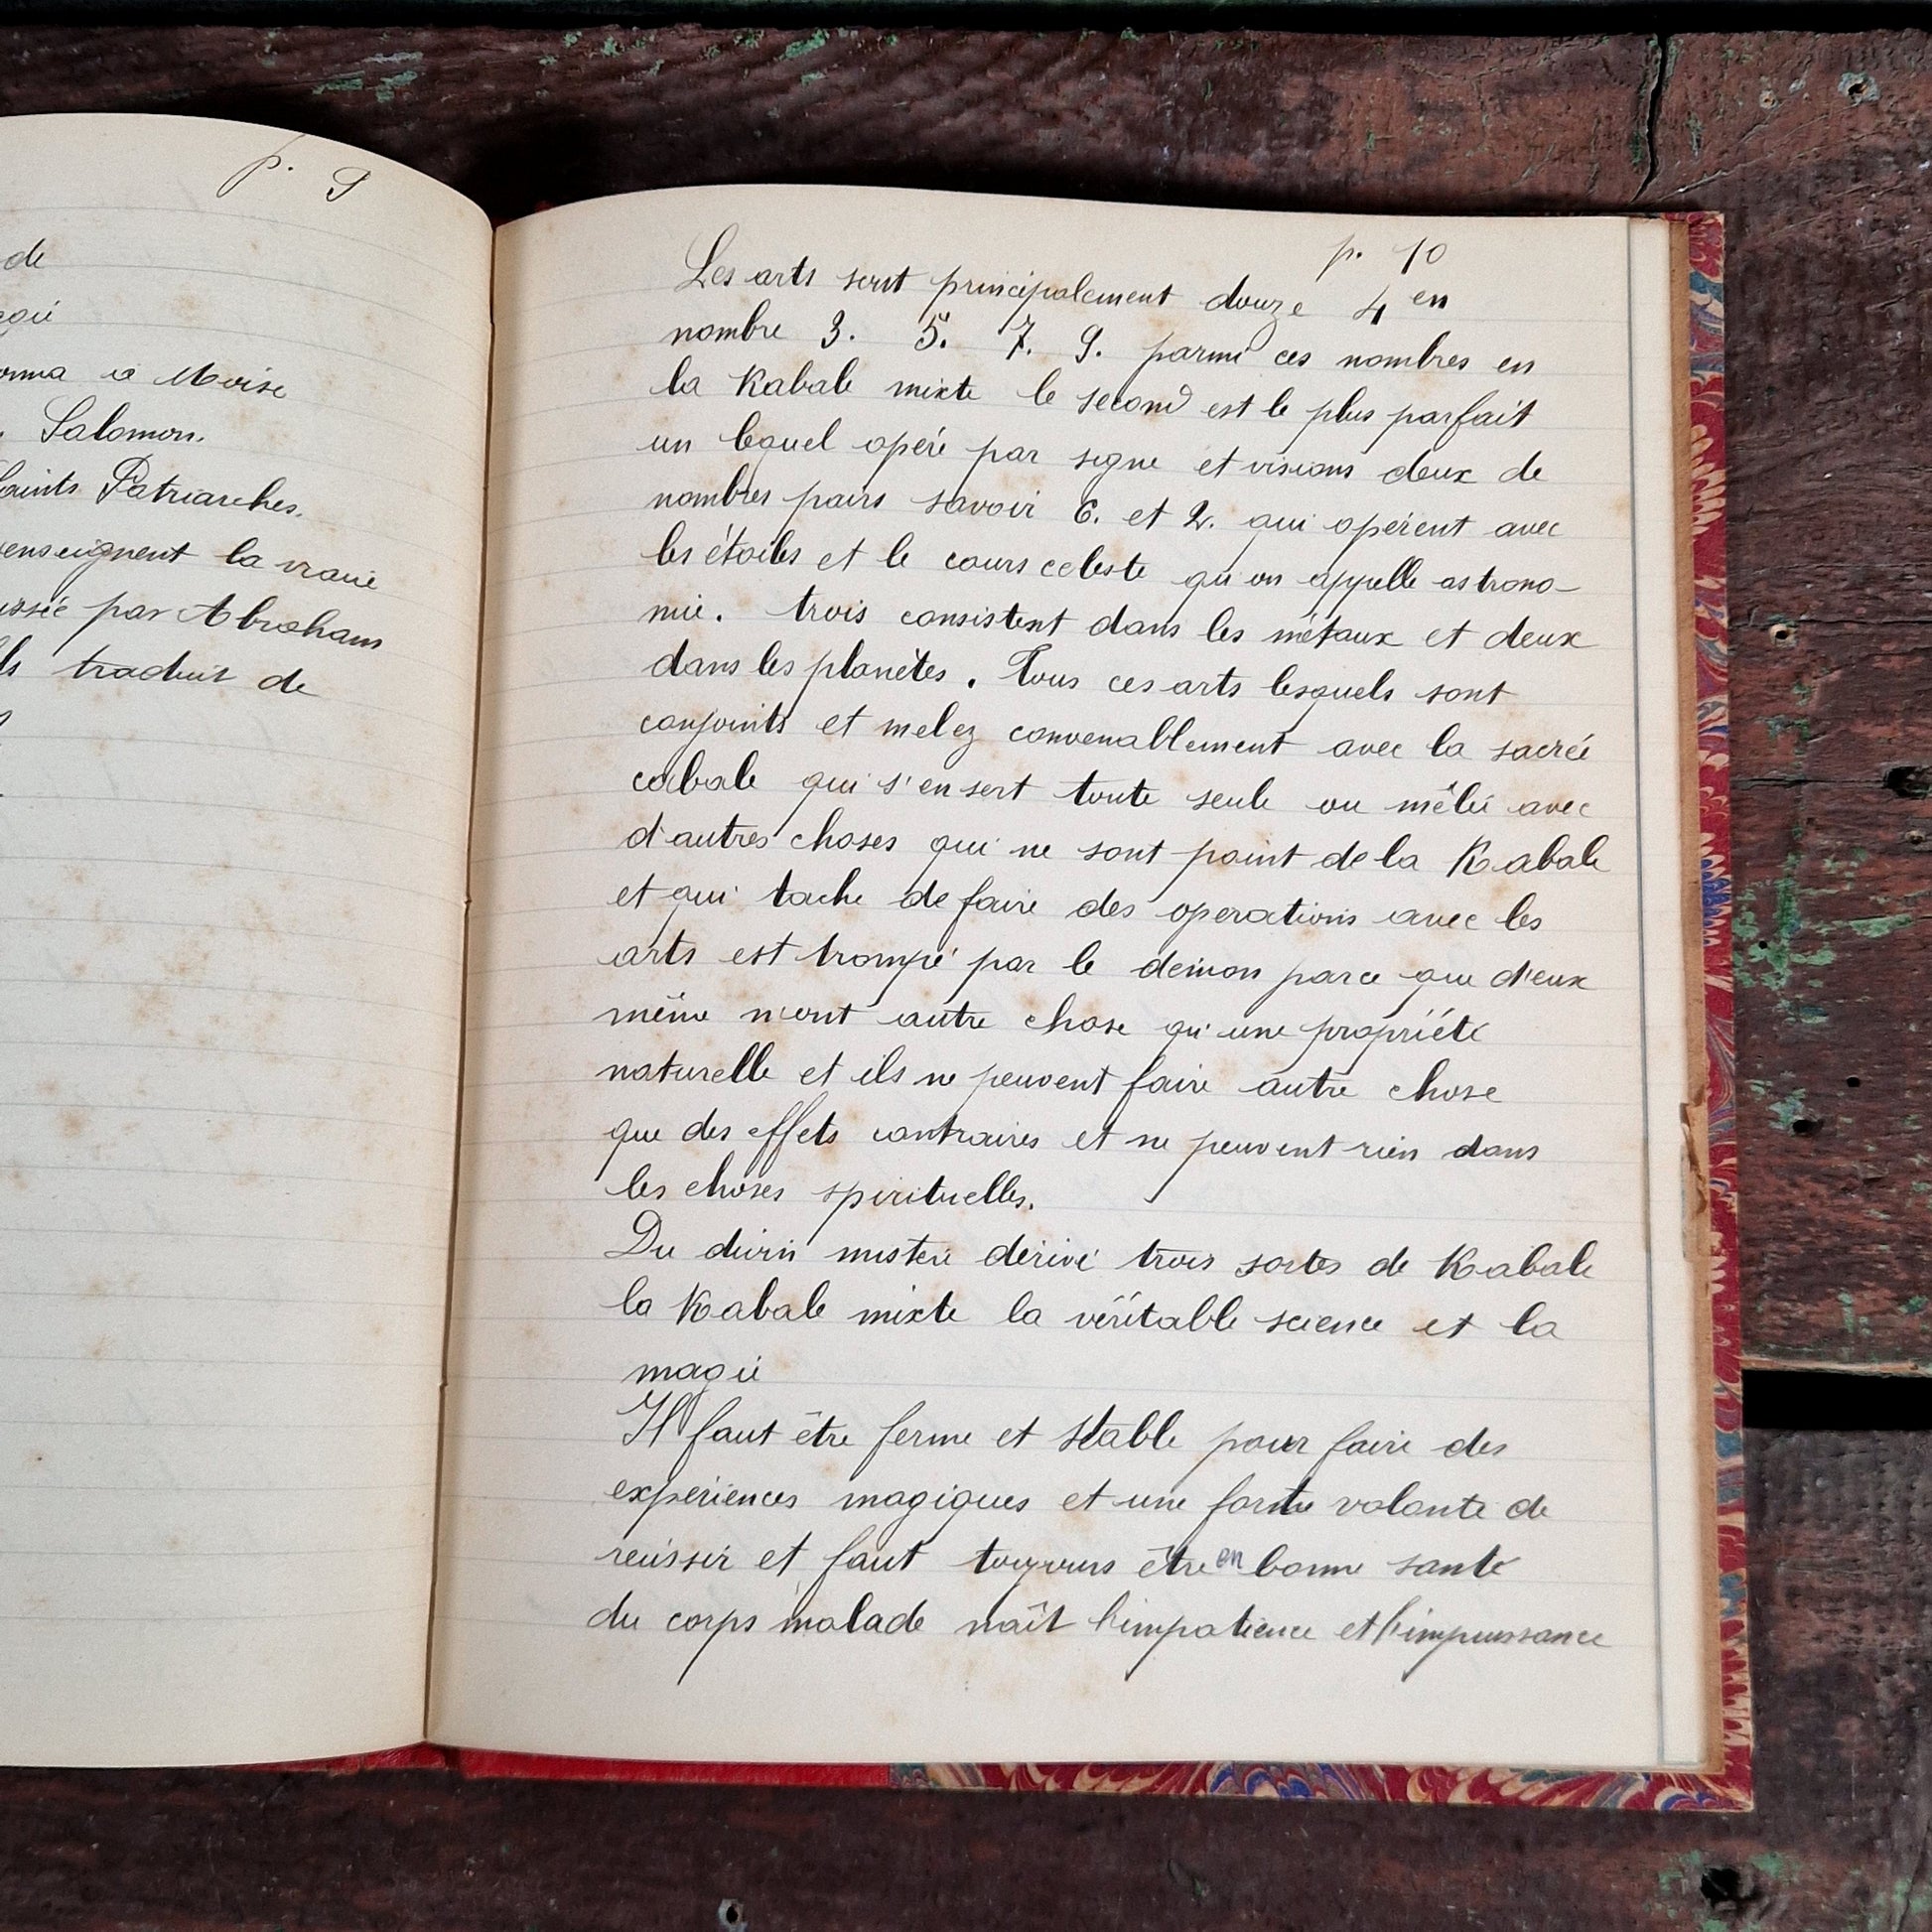 p. 9
de
onna a Moise
Salomon.
Saints Patriarches.
enseignent la vraie
par Abraham
traduit de
p. 10
Les arts sont principalement douze 4 en
nombre 3. 5. 7. 9. parmi ces nombres en
la Kabale mixte le second est le plus parfait
un lequel opère par signe et visions deux de
nombres pairs savoir 6. et 2. qui opèrent avec
les étoiles et le cours celeste qu'on appelle astrono-
mie. trois consistent dans les métaux et deux
dans les planètes. Tous ces arts lesquels sont
conjoints et melez convenablement avec la sacrée
cabale qui s'en sert toute seule ou mêlée avec
d'autres choses qui ne sont point de la Kabale
et qui tache de faire des operations avec les
arts est trompé par le démon parce que d'eux
même n'ont autre chose qu'une propriété
naturelle et ils ne peuvent faire autre chose
que des effets contraires et ne peuvent rien dans
les choses spirituelles.
Du divin mistere dérive trois sortes de Kabale
la Kabale mixte la véritable science et la
magie
Il faut être ferme et stable pour faire des
experiences magiques et une forte volonte de
reussir et faut toujours être en bonne santé
du corps malade naît l'impatience et l'impuissance